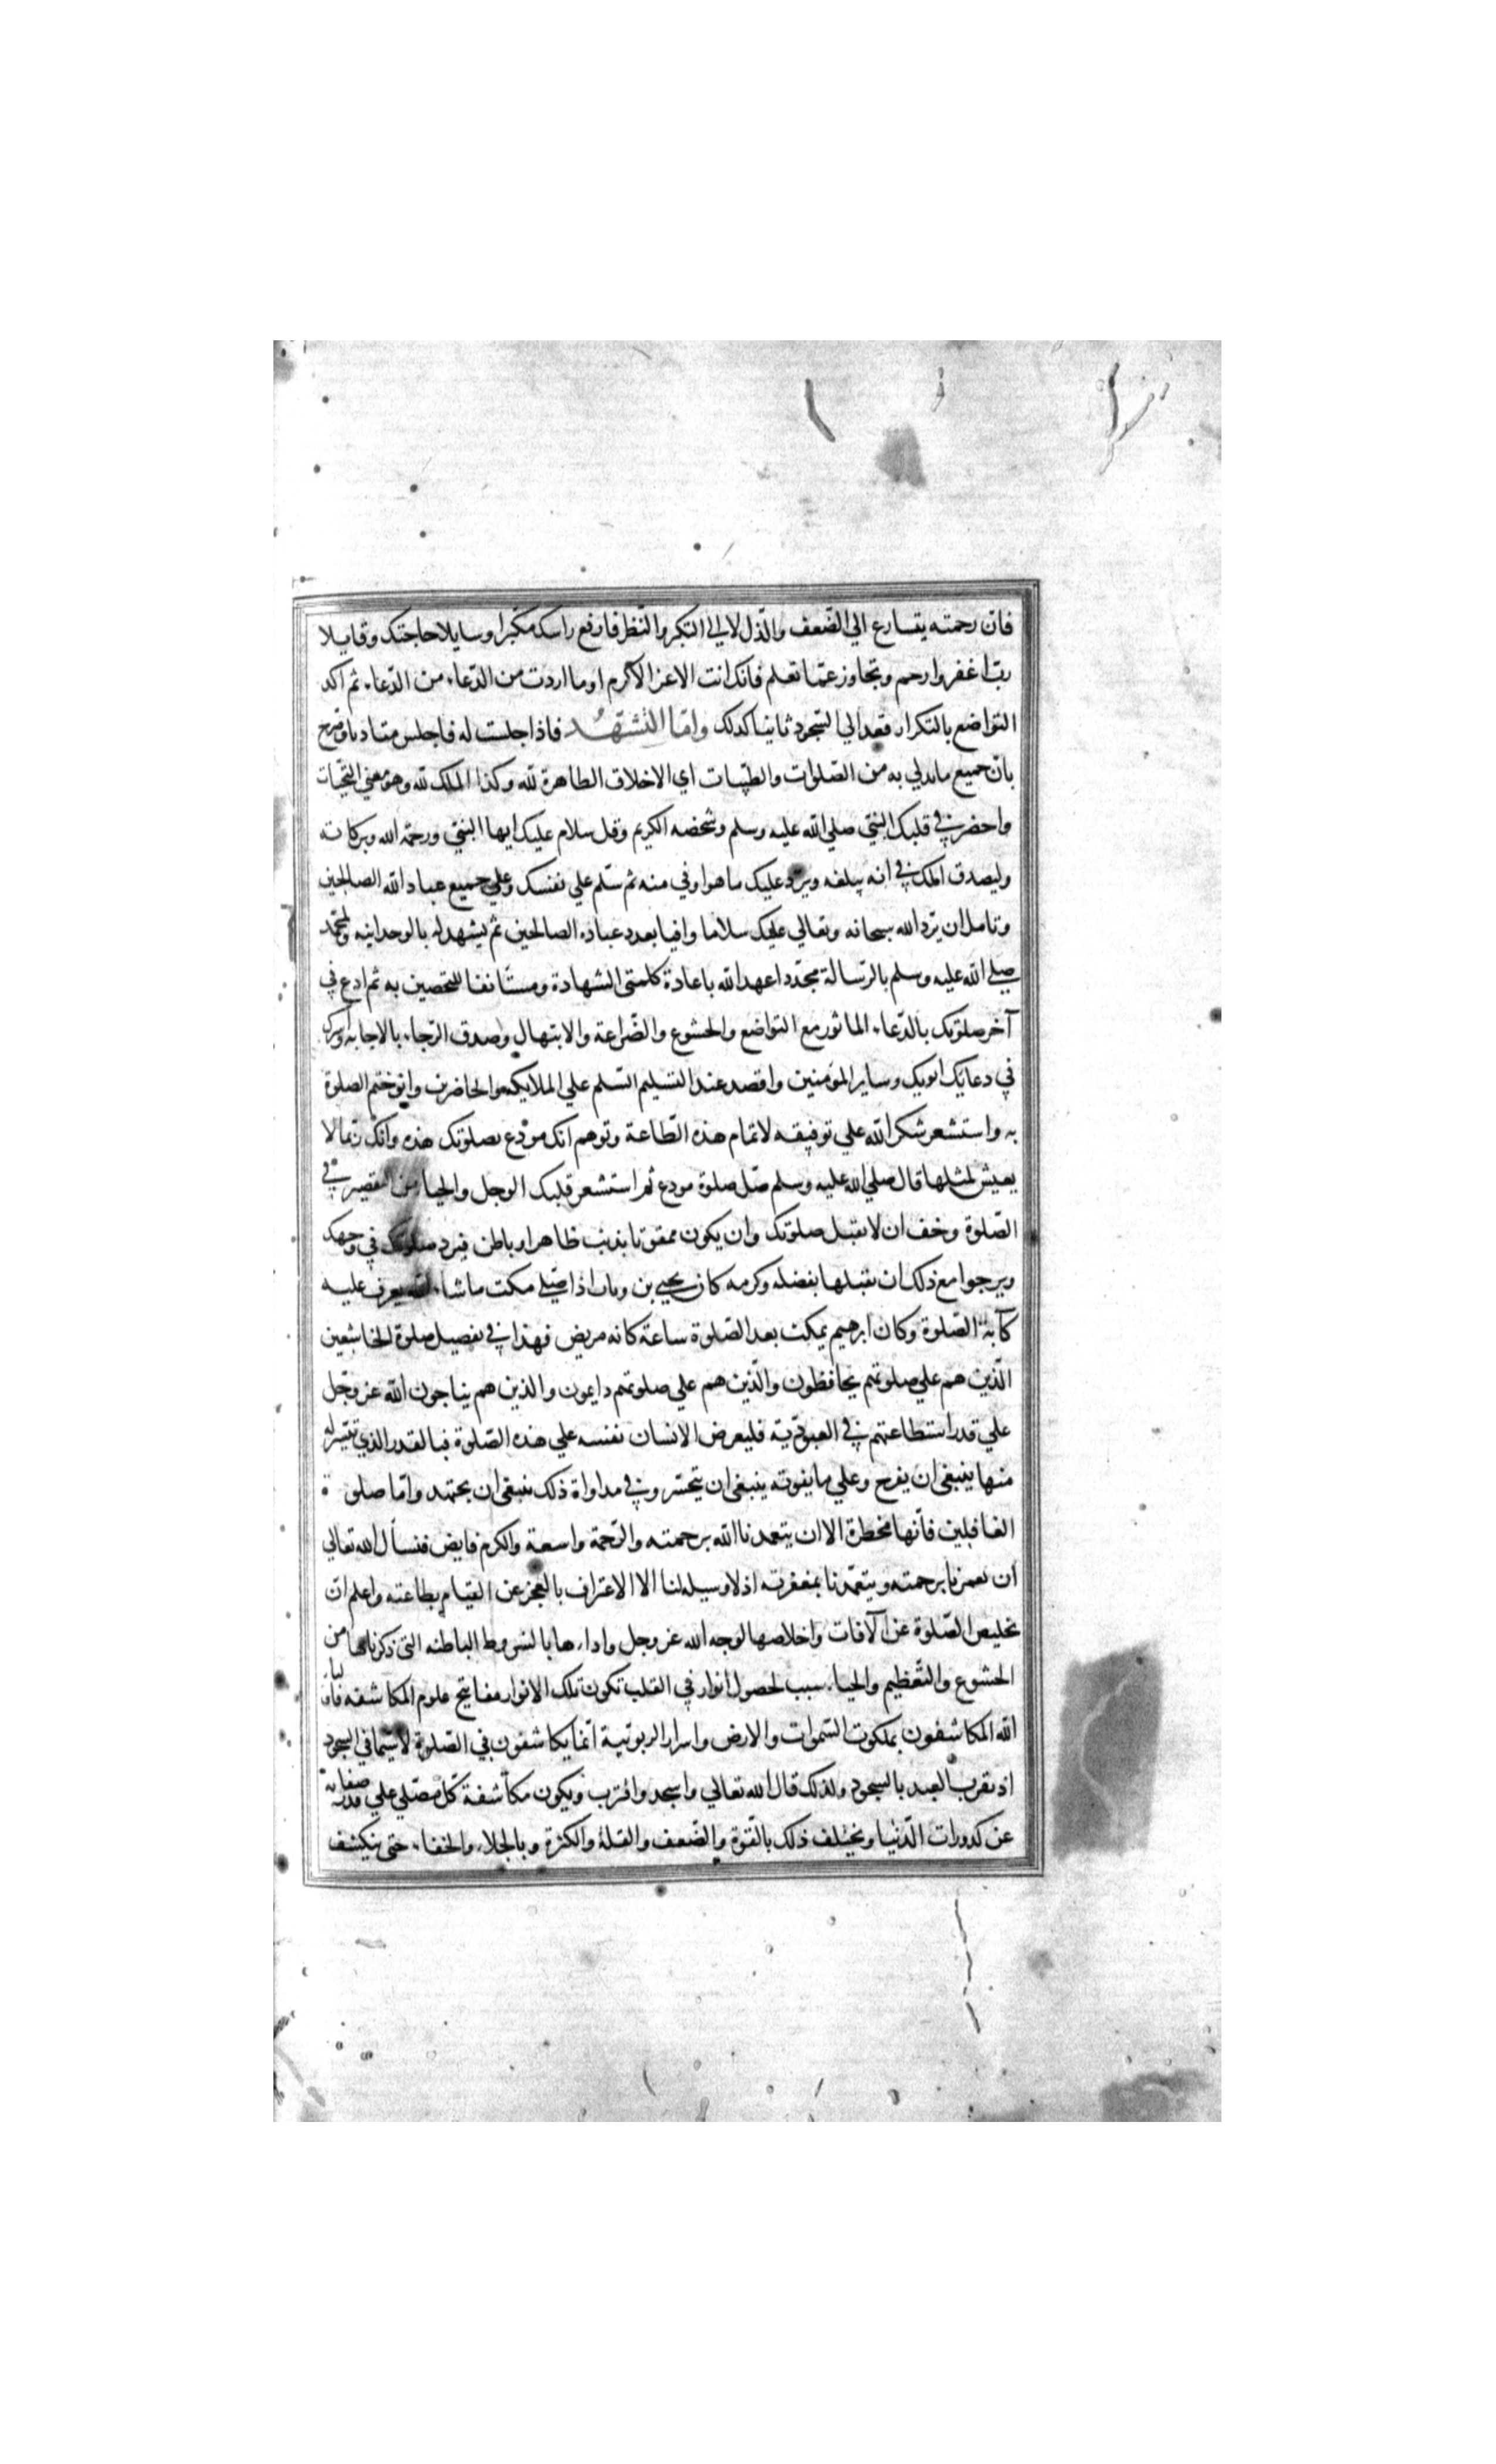 فان رحمته يتسارع الي الضّعف والذّل لا الي التكبر والنظر فارفع راسك مكبّرا وسايلا حاجتك وقايلا
ربّ اغفر وارحم وتجاوز عمّا تعلم فانك انت الاعز الاكرم او ما اردت من الدّعاء من الدّعاء ثم اكد
التواضع بالتكرار فعد الي السّجود ثانيا كذلك وامّا التّشهّد فاذا جلست له فاجلس متادبا وصرح
بان جميع ما يدلي به من الصّلوات والطيّبات اي الاخلاق الطاهرة للّه وكذا الملك للّه وهو معني التحيّات
واحضر في قلبك النبيّ صلي اللّه عليه وسلم وشخصه الكريم وقل سلام عليك ايها النبيّ ورحمة اللّه وبركاته
وليصدق املك في انه يبلغه ويردّ عليك ما هو اوفي منه ثم سلّم علي نفسك وعلي جميع عباد اللّه الصالحين
وتامل ان يردّ اللّه سبحانه وتعالي عليك سلاما وافيا بعدد عباده الصالحين ثم يشهد له بالوحدانيه ولمحمّد
صلي اللّه عليه وسلم بالرّسالة مجدّدا عهد اللّه باعادة كلمتي الشهادة ومستانفا للتحصين به ثم ادع في
آخر صلوتك بالدّعاء الماثور مع التواضع والخشوع والضّراعة والابتهال وصدق الرّجاء بالاجابه واشرك
في دعايك ابويك وساير المؤمنين واقصد عند التسليم السّلم علي الملايكه والحاضرين وانو ختم الصلوة
به واستشعر شكر اللّه علي توفيقه لاتمام هذه الطّاعة وتوهم انك مودع بصلوتك هذه وانك ربّما لا
يعيش لمثلها قال صلي اللّه عليه وسلم صلّ صلوة مودع ثم استشعر قلبك الوجل والحياء من التقصير في
الصّلوة وخف ان لا تقبل صلوتك وان يكون ممقوتا بذنب ظاهر او باطن فيرد صلوتك في وجهك
ويرجوا مع ذلك ان تقبلها بفضله وكرمه كان يحيي بن وثاب اذا صلّي مكث ما شاء اللّه يعرف عليه
كآبة الصّلوة وكان ابرهيم يمكث بعد الصّلوة ساعة كانه مريض فهذا في تفصيل صلوة الخاشعين
الّذين هم علي صلوتهم يحافظون والّذين هم علي صلوتهم دايمون والذين هم يناجون اللّه عز وجّل
علي قدر استطاعتهم في العبوديّة فليعرض الانسان نفسه علي هذه الصّلوة فبالقدر الذي تيسّر له
منها ينبغي ان يفرح وعلي ما يفوته ينبغي ان يتحسّر وفي مداواة ذلك ينبغي ان يجتهد وامّا صلوة
الغافلين فانها مخطرة الا ان يتغمدنا اللّه برحمته والرّحمة واسعة والكرم فايض فنسأل اللّه تعالي
ان يغمرنا برحمته ويتغمّدنا بمغفرته اذ لا وسيله لنا الا الاعتراف بالعجز عن القيام بطاعته واعلم انّ
تخليص الصّلوة عن الآفات واخلاصها لوجه اللّه عز وجل واداءها بالشروط الباطنه التي ذكرناها من
الخشوع والتّعظيم والحياء سبب لحصول انوار في القلب تكون تلك الانوار مفاتيح علوم المكاشفه فاولياء
اللّه المكاشفون بملكوت السّموات والارض واسرار الربوبية انّما يكاشفون في الصّلوة لا سيّما في السجود
اذ تقرب العبد بالسجود ولذلك قال اللّه تعالي واسجد واقترب ويكون مكاشفة كلّ مصّلي علي قدر صفائه
عن كدورات الدّنيا ويختلف ذلك بالقّوة والضّعف والقلة والكثرة وبالجلاء والخفاء حتي ينكشف